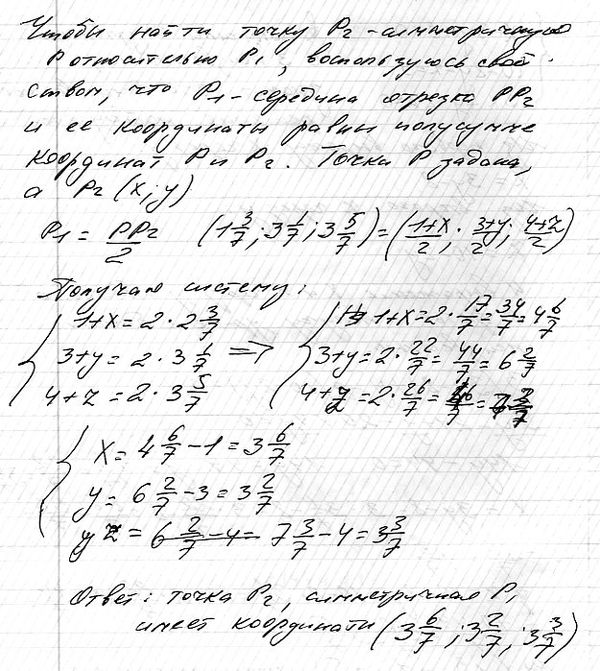 Чтобы найти точку P₂ - симметричную
P относительно P₁, воспользуюсь свой-
ством, что P₁ - середина отрезка PP₂
и ее координаты равны полусумме
координат P и P₂. Точка P задана,
а P₂ (x; y)
P₁ = PP₂/2 (1 3/7; 3 1/7; 3 5/7) = (1+x/2; 3+y/2; 4+z/2)
Получаю систему:
{ 1+x = 2·2 3/7 { 1+x = 2·17/7 = 34/7 = 4 6/7
3+y = 2·3 1/7 => 3+y = 2·22/7 = 44/7 = 6 2/7
4+z = 2·3 5/7 4+z = 2·26/7 =
{ x = 4 6/7 - 1 = 3 6/7
y = 6 2/7 - 3 = 3 2/7
z = 6 2/7 - 4 = 7 3/7 - 4 = 3 3/7
Ответ: точка P₂, симметричная P₁
имеет координати (3 6/7; 3 2/7; 3 3/7)